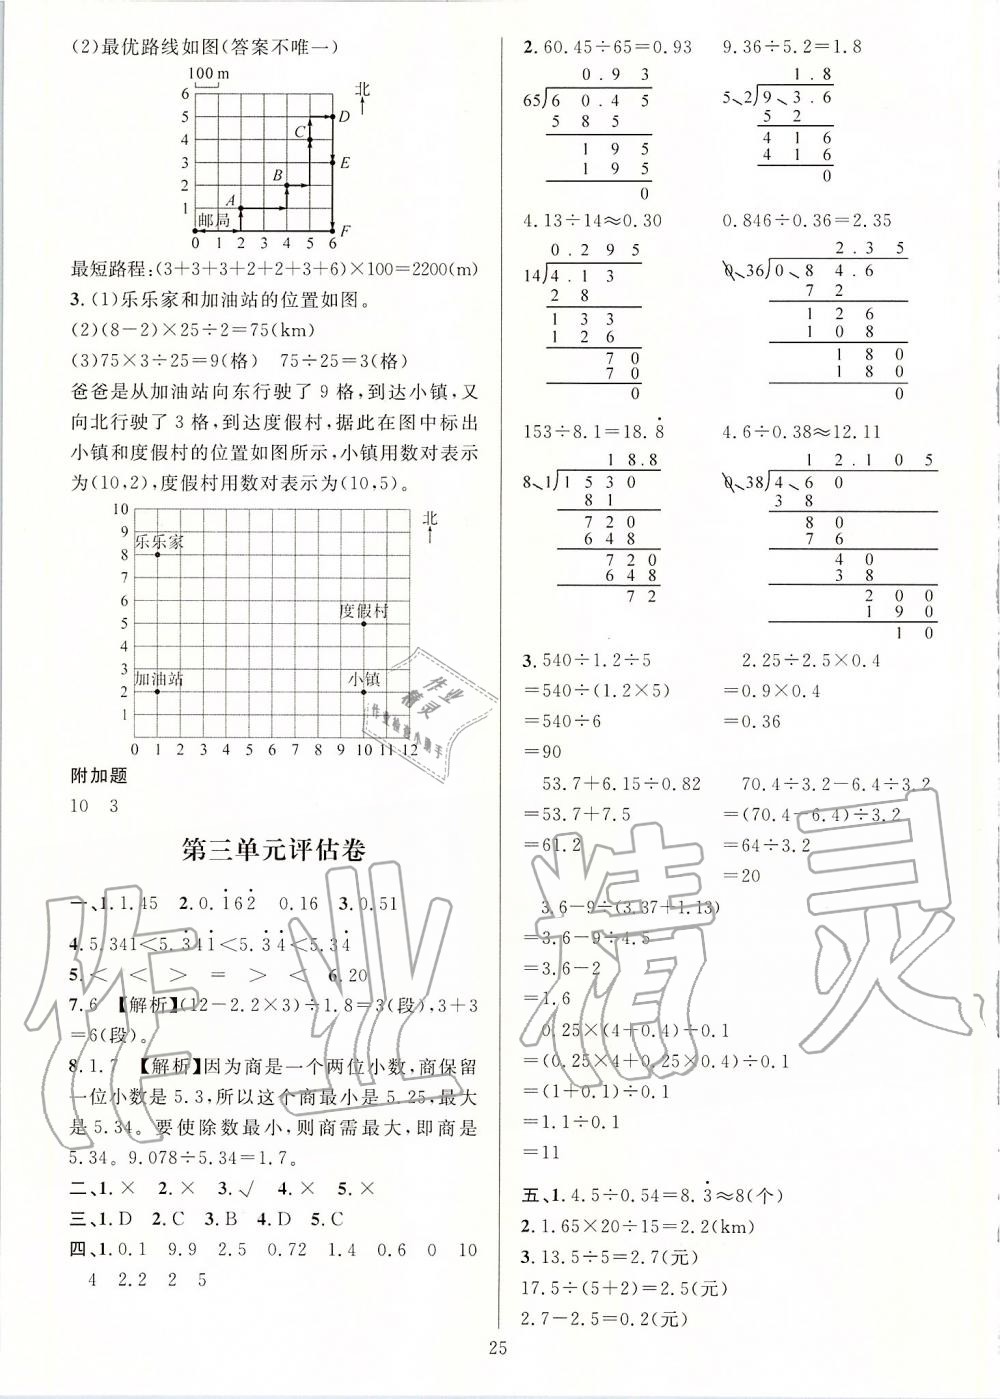 (2)最优路线如图(答案不唯一)
100 m
北
6
5
4
3
2
1
A
B
C
D
E
F
邮局
0 1 2 3 4 5 6
最短路程:(3+3+3+2+2+3+6)×100=2200(m)
3.(1)乐乐家和加油站的位置如图。
(2)(8-2)×25÷2=75(km)
(3)75×3÷25=9(格) 75÷25=3(格)
爸爸是从加油站向东行驶了 9 格,到达小镇,又
向北行驶了 3 格,到达度假村,据此在图中标出
小镇和度假村的位置如图所示,小镇用数对表示
为(10,2),度假村用数对表示为(10,5)。
10
9
8
7
6
5
4
3
2
1
乐乐家
度假村
加油站
小镇
北
0 1 2 3 4 5 6 7 8 9 10 11 12
附加题
10 3
第三单元评估卷
一、1. 1.45 2. 0.1̇62̇ 0.16 3. 0.51
4. 5.341<5.3̇41̇<5.3̇4̇<5.34̇
5. < < > = > < 6. 20
7. 6 【解析】(12-2.2×3)÷1.8=3(段),3+3
=6(段)。
8. 1.7 【解析】因为商是一个两位小数,商保留
一位小数是 5.3,所以这个商最小是 5.25,最大
是 5.34。要使除数最小,则商需最大,即商是
5.34。9.078÷5.34=1.7。
二、1. × 2. × 3. √ 4. × 5. ×
三、1. D 2. C 3. B 4. D 5. C
四、1. 0.1 9.9 2.5 0.72 1.4 0.6 0 10
4 2.2 2 5
2. 60.45÷65=0.93 9.36÷5.2=1.8
0.93
65)60.45
585
195
195
0
1.8
5.2)9.3.6
52
416
416
0
4.13÷14≈0.30 0.846÷0.36=2.35
0.295
14)4.13
28
133
126
70
70
0
2.35
0.36)0.84.6
72
126
108
180
180
0
153÷8.1=18.8̇ 4.6÷0.38≈12.11
18.8
8.1)1530
81
720
648
720
648
72
12.105
0.38)4.60
38
80
76
40
38
200
190
10
3. 540÷1.2÷5 2.25÷2.5×0.4
=540÷(1.2×5) =0.9×0.4
=540÷6 =0.36
=90
53.7+6.15÷0.82 70.4÷3.2-6.4÷3.2
=53.7+7.5 =(70.4-6.4)÷3.2
=61.2 =64÷3.2
=20
3.6-9÷(3.37+1.13)
=3.6-9÷4.5
=3.6-2
=1.6
0.25×(4+0.4)÷0.1
=(0.25×4+0.25×0.4)÷0.1
=(1+0.1)÷0.1
=1.1÷0.1
=11
五、1. 4.5÷0.54=8.3̇≈8(个)
2. 1.65×20÷15=2.2(km)
3. 13.5÷5=2.7(元)
17.5÷(5+2)=2.5(元)
2.7-2.5=0.2(元)
25
作业精灵
作业
精灵
作业检查小帮手